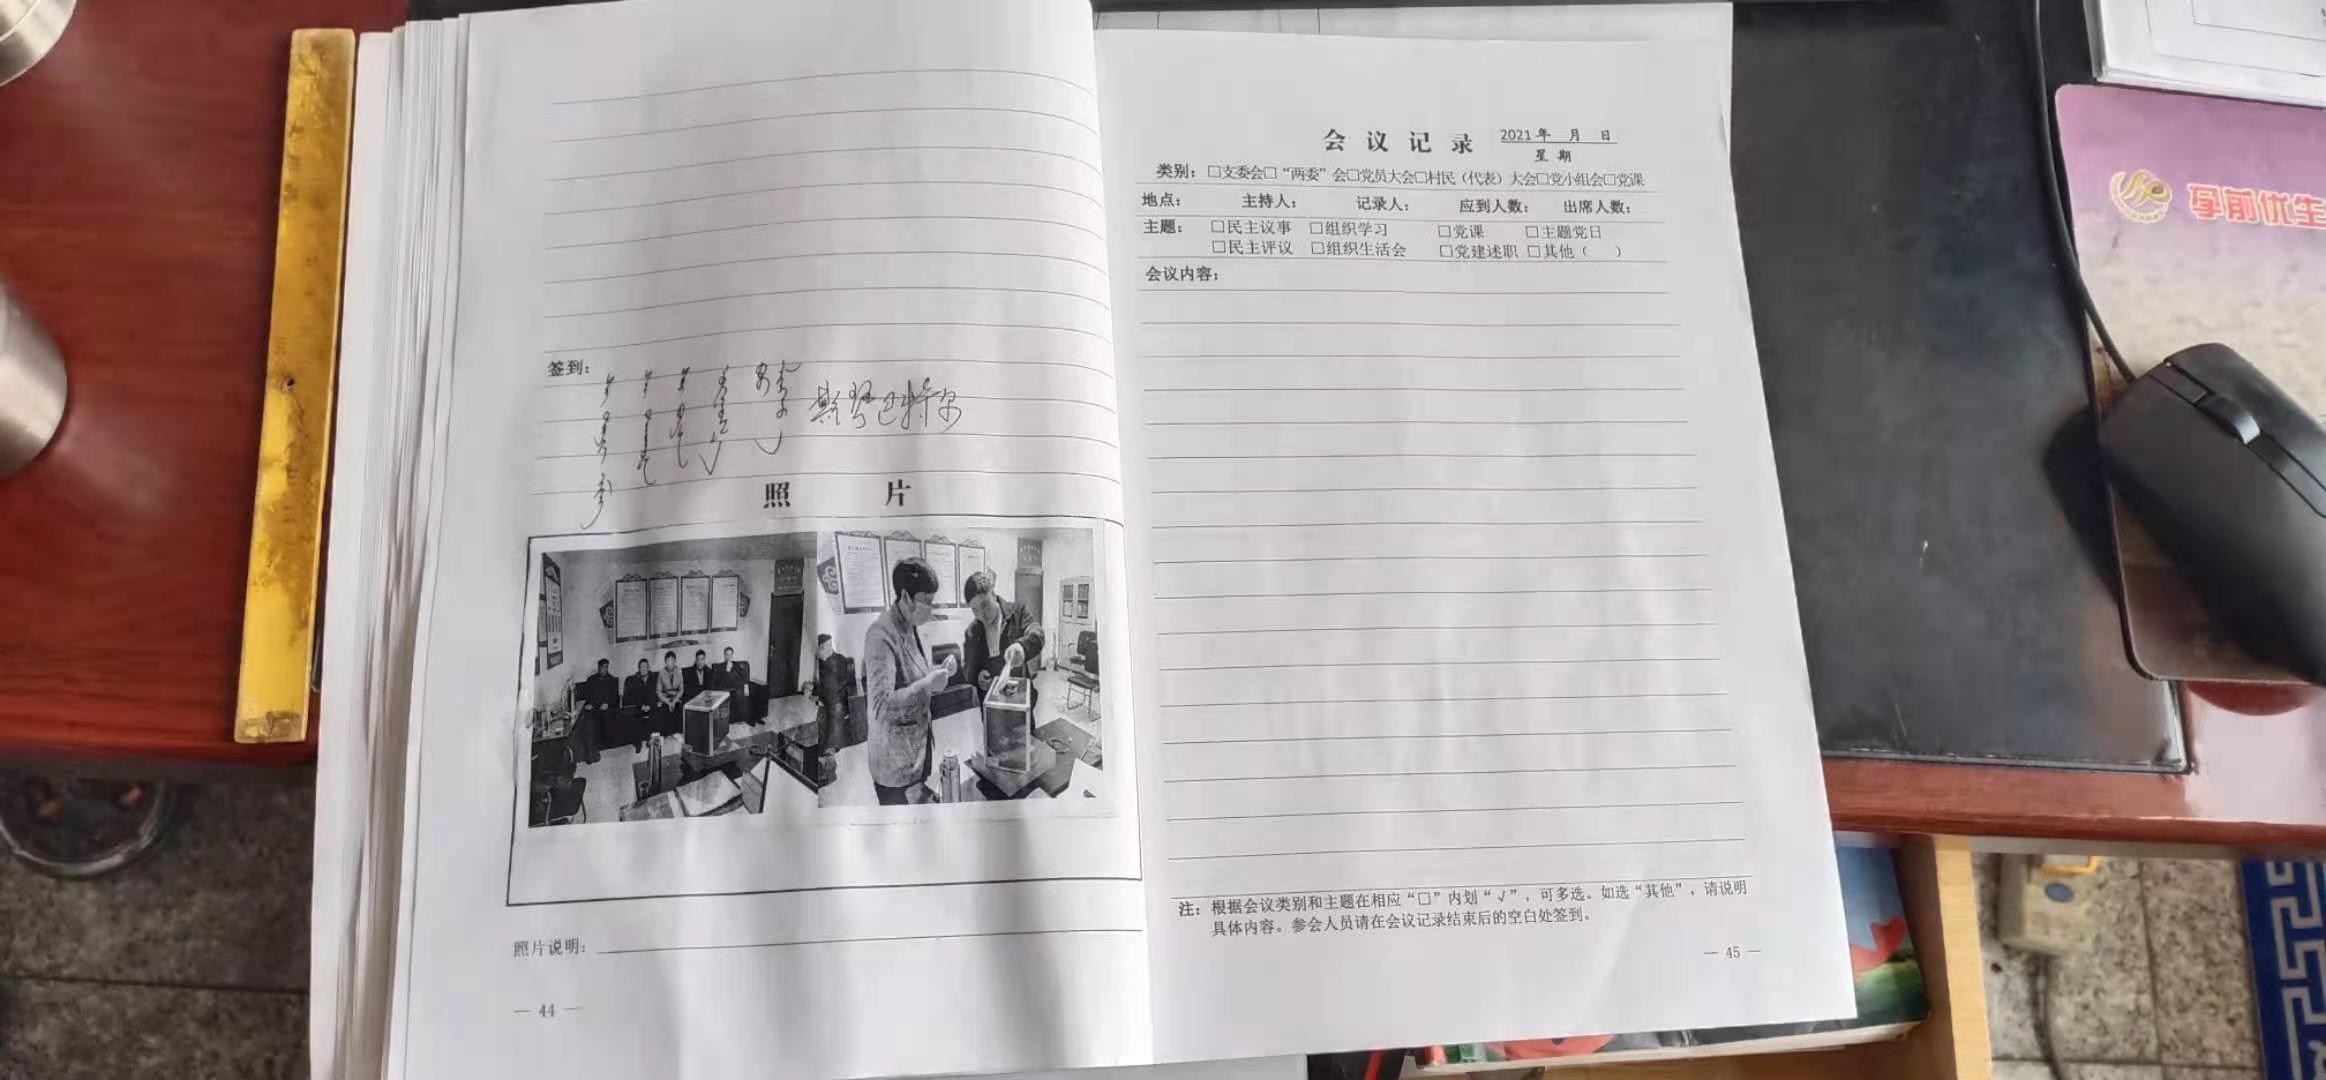 签到：
斯琴巴特尔
照 片
照片说明：
— 44 —
会 议 记 录 2021 年 月 日
星 期
类别：□支委会□“两委”会□党员大会□村民（代表）大会□党小组会□党课
地点： 主持人： 记录人： 应到人数： 出席人数：
主题： □民主议事 □组织学习 □党课 □主题党日
□民主评议 □组织生活会 □党建述职 □其他（ ）
会议内容：
注：根据会议类别和主题在相应“□”内划“√”，可多选。如选“其他”，请说明
具体内容。参会人员请在会议记录结束后的空白处签到。
— 45 —
孕前优生